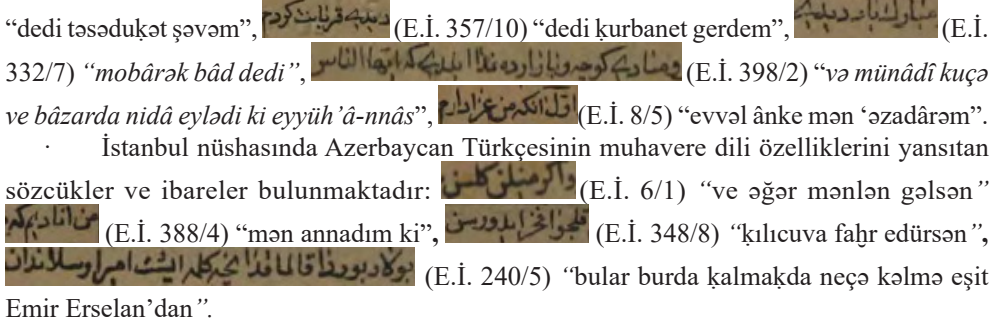 “dedi təsəduḳət şəvəm”, دیدی قربانت کردم (E.İ. 357/10) “dedi ḳurbanet gerdem”, مبارک باد دیدی (E.İ.
332/7) “mobârək bâd dedi”, (E.İ. 398/2) “və münâdî kuçə
ve bâzarda nidâ eylədi ki eyyüh’â-nnâs”, اول آنکه من عزادارم (E.İ. 8/5) “evvəl ânke mən ‘əzadârəm”.
· İstanbul nüshasında Azerbaycan Türkçesinin muhavere dili özelliklerini yansıtan
sözcükler ve ibareler bulunmaktadır: و اکر منلن کلسن (E.İ. 6/1) “ve əğər mənlən gəlsən”
من انادیم که (E.İ. 388/4) “mən annadım ki”, (E.İ. 348/8) “ḳılıcuva faḫr edürsən”,
(E.İ. 240/5) “bular burda ḳalmaḳda neçə kəlmə eşit
Emir Erselan’dan”.